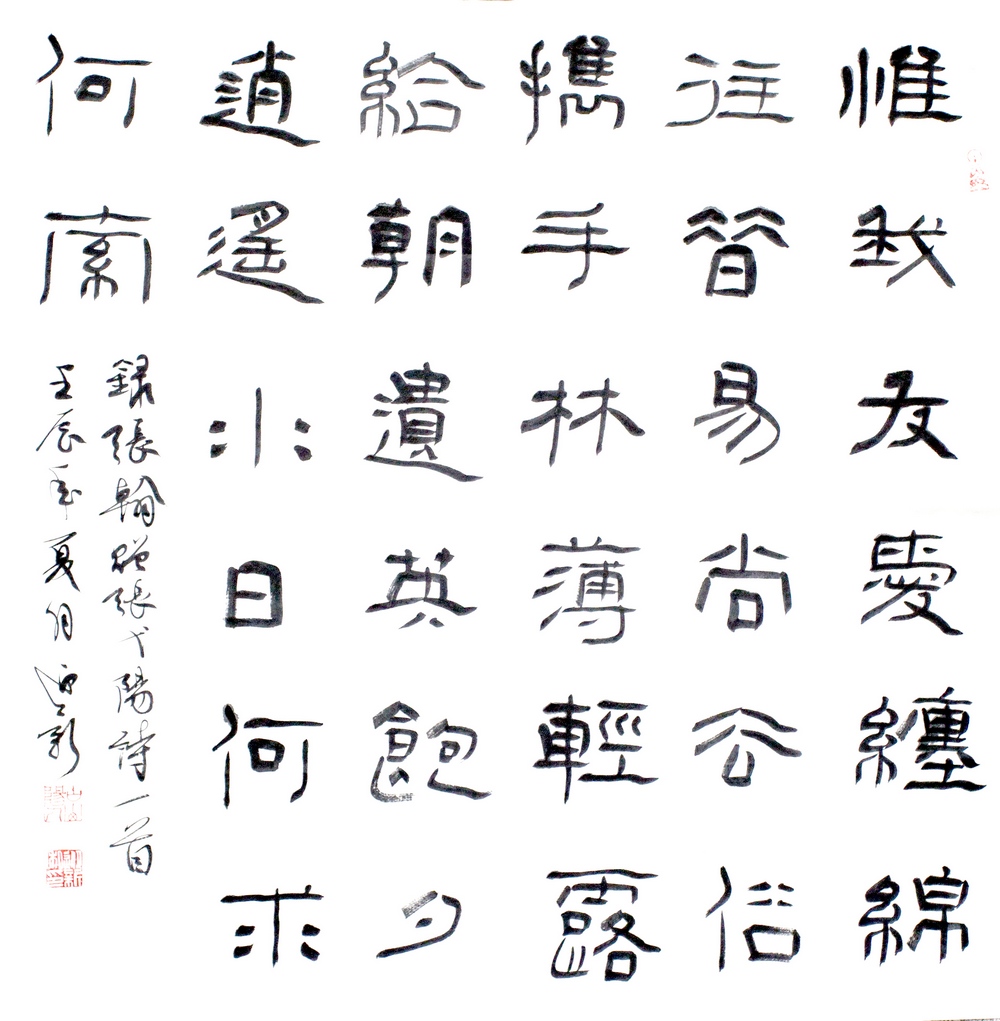 惟我友愛纏綿
往昔易尚公俗
攜手林薄輕露
給朝遺英飽夕
逍遙水日何求
何索
錄張翰贈張弋陽詩一首
壬辰年夏月